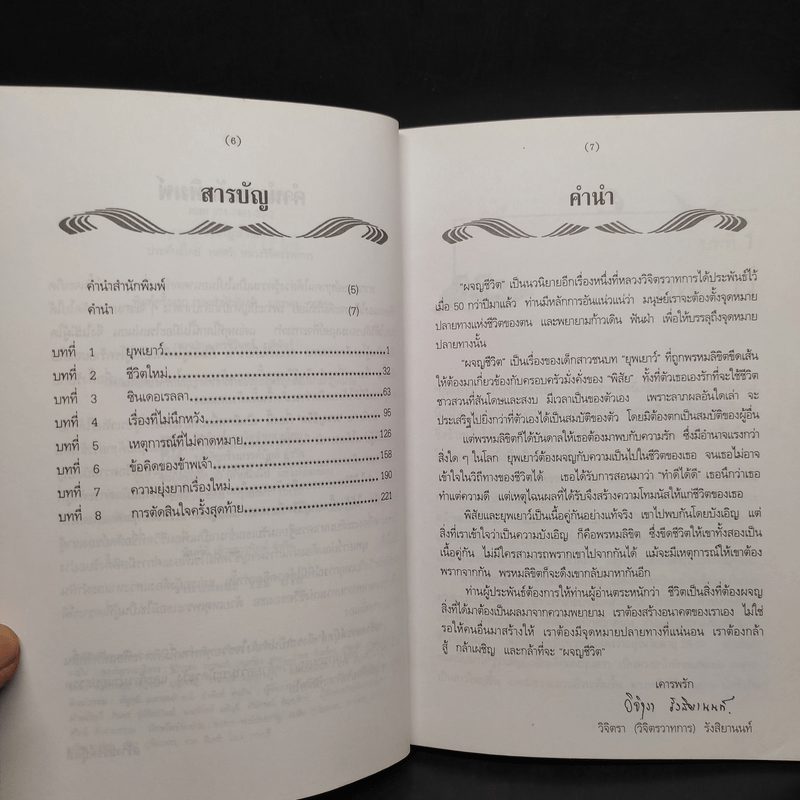 (6)
สารบัญ
คำนำสำนักพิมพ์ (5)
คำนำ (7)
บทที่ 1 ยุพเยาว์........................................1
บทที่ 2 ชีวิตใหม่........................................32
บทที่ 3 ซินเดอเรลลา........................................63
บทที่ 4 เรื่องที่ไม่นึกหวัง........................................95
บทที่ 5 เหตุการณ์ที่ไม่คาดหมาย........................................126
บทที่ 6 ข้อคิดของข้าพเจ้า........................................158
บทที่ 7 ความยุ่งยากเรื่องใหม่........................................190
บทที่ 8 การตัดสินใจครั้งสุดท้าย........................................221
(7)
คำนำ
"ผจญชีวิต" เป็นนวนิยายอีกเรื่องหนึ่งที่หลวงวิจิตรวาทการได้ประพันธ์ไว้
เมื่อ 50 กว่าปีมาแล้ว ท่านมีหลักการอันแน่วแน่ว่า มนุษย์เราจะต้องตั้งจุดหมาย
ปลายทางแห่งชีวิตของตน และพยายามก้าวเดิน ฟันฝ่า เพื่อให้บรรลุถึงจุดหมาย
ปลายทางนั้น
"ผจญชีวิต" เป็นเรื่องของเด็กสาวชนบท "ยุพเยาว์" ที่ถูกพรหมลิขิตขีดเส้น
ให้ต้องมาเกี่ยวข้องกับครอบครัวมั่งคั่งของ "พิสัย" ทั้งที่ตัวเธอเองรักที่จะใช้ชีวิต
ชาวสวนที่สันโดษและสงบ มีเวลาเป็นของตัวเอง เพราะลาภผลอันใดเล่า จะ
ประเสริฐไปยิ่งกว่าที่ตัวเองได้เป็นสมบัติของตัว โดยมิต้องตกเป็นสมบัติของผู้อื่น
แต่พรหมลิขิตก็ได้บันดาลให้เธอต้องมาพบกับความรัก ซึ่งมีอำนาจแรงกว่า
สิ่งใด ๆ ในโลก ยุพเยาว์ต้องผจญกับความเป็นไปในชีวิตของเธอ จนเธอไม่อาจ
เข้าใจในวิถีทางของชีวิตได้ เธอได้รับการสอนมาว่า "ทำดีได้ดี" เธอนึกว่าเธอ
ทำแต่ความดี แต่เหตุไฉนผลที่ได้รับจึงสร้างความโทมนัสให้แก่ชีวิตของเธอ
พิสัยและยุพเยาว์เป็นเนื้อคู่กันอย่างแท้จริง เขาไปพบกันโดยบังเอิญ แต่
สิ่งที่เราเข้าใจว่าเป็นความบังเอิญ ก็คือพรหมลิขิต ซึ่งขีดชีวิตให้เขาทั้งสองเป็น
เนื้อคู่กัน ไม่มีใครสามารถพรากเขาไปจากกันได้ แม้จะมีเหตุการณ์ให้เขาต้อง
พรากจากกัน พรหมลิขิตก็จะดึงเขากลับมาหากันอีก
ท่านผู้ประพันธ์ต้องการให้ท่านผู้อ่านตระหนักว่า ชีวิตเป็นสิ่งที่ต้องผจญ
สิ่งที่ได้มาต้องเป็นผลมาจากความพยายาม เราต้องสร้างอนาคตของเราเอง ไม่ใช่
รอให้คนอื่นมาสร้างให้ เราต้องมีจุดหมายปลายทางที่แน่นอน เราต้องกล้า
สู้ กล้าเผชิญ และกล้าที่จะ "ผจญชีวิต"
เคารพรัก
วิจิตรา รังสิยานนท์
วิจิตรา (วิจิตรวาทการ) รังสิยานนท์